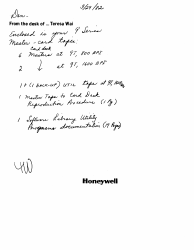 3/29/82
Dan
From the desk of ... Teresa Wai
Enclosed is your 9 Series
Master - card tape:
card deck
6 Masters at 9T, 800 BPI
2 ↓ at 9T, 1600 BPI
1 tape at 9T,
1 Master Tape to Card Deck
Reproduction Procedure (1 Pg)
1 Software Library Utility
Programs documentation (19 Pgs)
TW
Honeywell